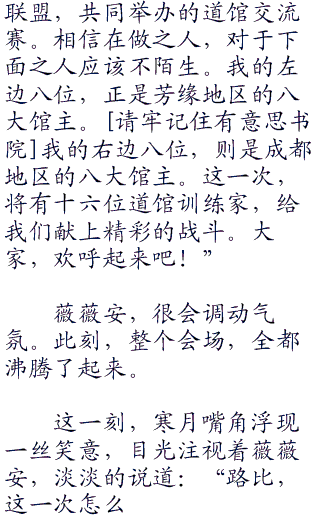 联盟，共同举办的道馆交流
赛。相信在做之人，对于下
面之人应该不陌生。我的左
边八位，正是芳缘地区的八
大馆主。[请牢记住有意思书
院]我的右边八位，则是成都
地区的八大馆主。这一次，
将有十六位道馆训练家，给
我们献上精彩的战斗。大
家，欢呼起来吧！”
薇薇安，很会调动气
氛。此刻，整个会场，全都
沸腾了起来。
这一刻，寒月嘴角浮现
一丝笑意，目光注视着薇薇
安，淡淡的说道：“路比，
这一次怎么